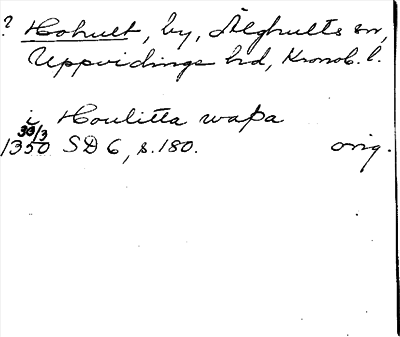 ? Hohult, by, Älghults sn,
Uppvidinge hd, Kronob. l.
i Houlitta wapa
30/3
1350 SD 6, s. 180. orig.